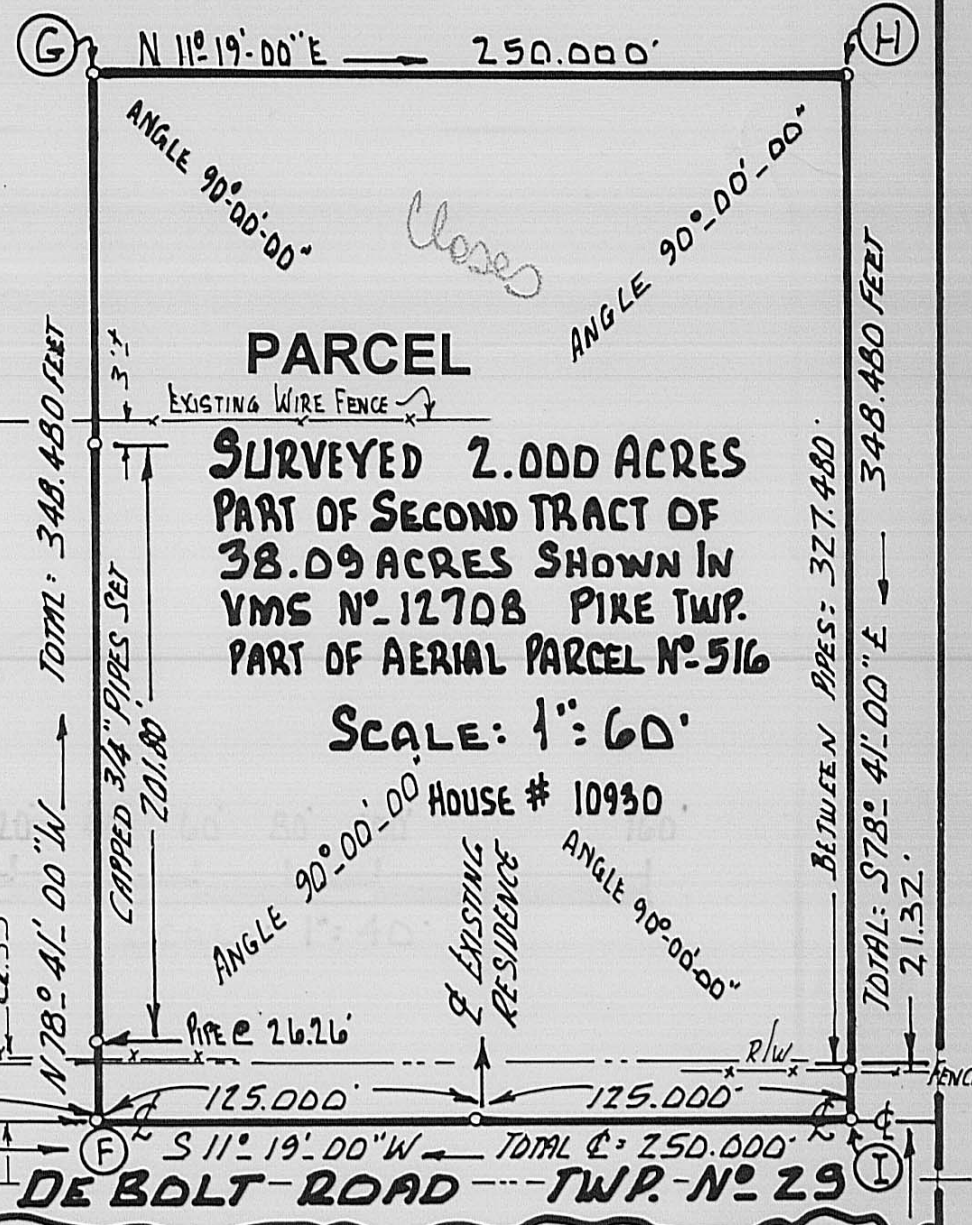 G N 11º-19'-00"E 250.000' H
ANGLE 90º-00'-00"
ANGLE 90º-00'-00"
Closes
PARCEL
3'±
EXISTING WIRE FENCE
SURVEYED 2.000 ACRES
PART OF SECOND TRACT OF
38.09 ACRES SHOWN IN
VMS Nº-12708 PIKE TWP.
PART OF AERIAL PARCEL Nº-516
SCALE: 1": 60'
HOUSE # 10930
N 78º-41'-00"W TOTAL: 348.480 FEET
CAPPED 3/4" PIPES SET
201.80'
BETWEEN PIPES: 327.480'
TOTAL: S78º-41'-00"E 348.480 FEET
21.32'
ANGLE 90º-00'-00"
ANGLE 90º-00'-00"
℄ EXISTING
RESIDENCE
PIPE @ 26.26'
R/W
FENC
125.000' 125.000'
℄ ℄ ℄
F S 11º-19'-00"W TOTAL ℄ = 250.000' I
DE BOLT - ROAD --- TWP.-Nº 29